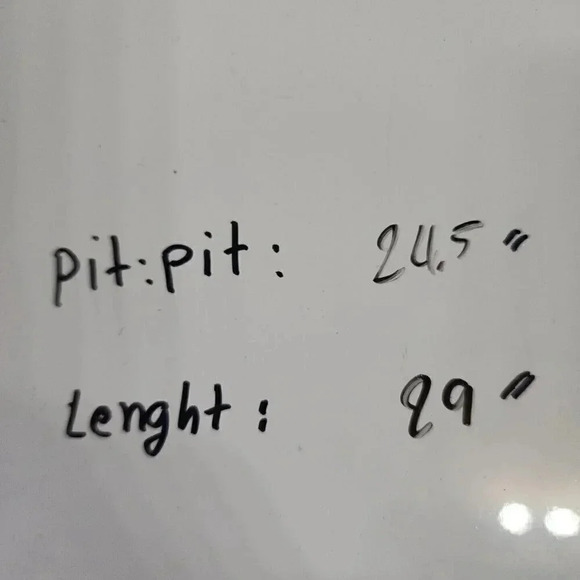 Pit:pit: 24.5"
Lenght: 29"